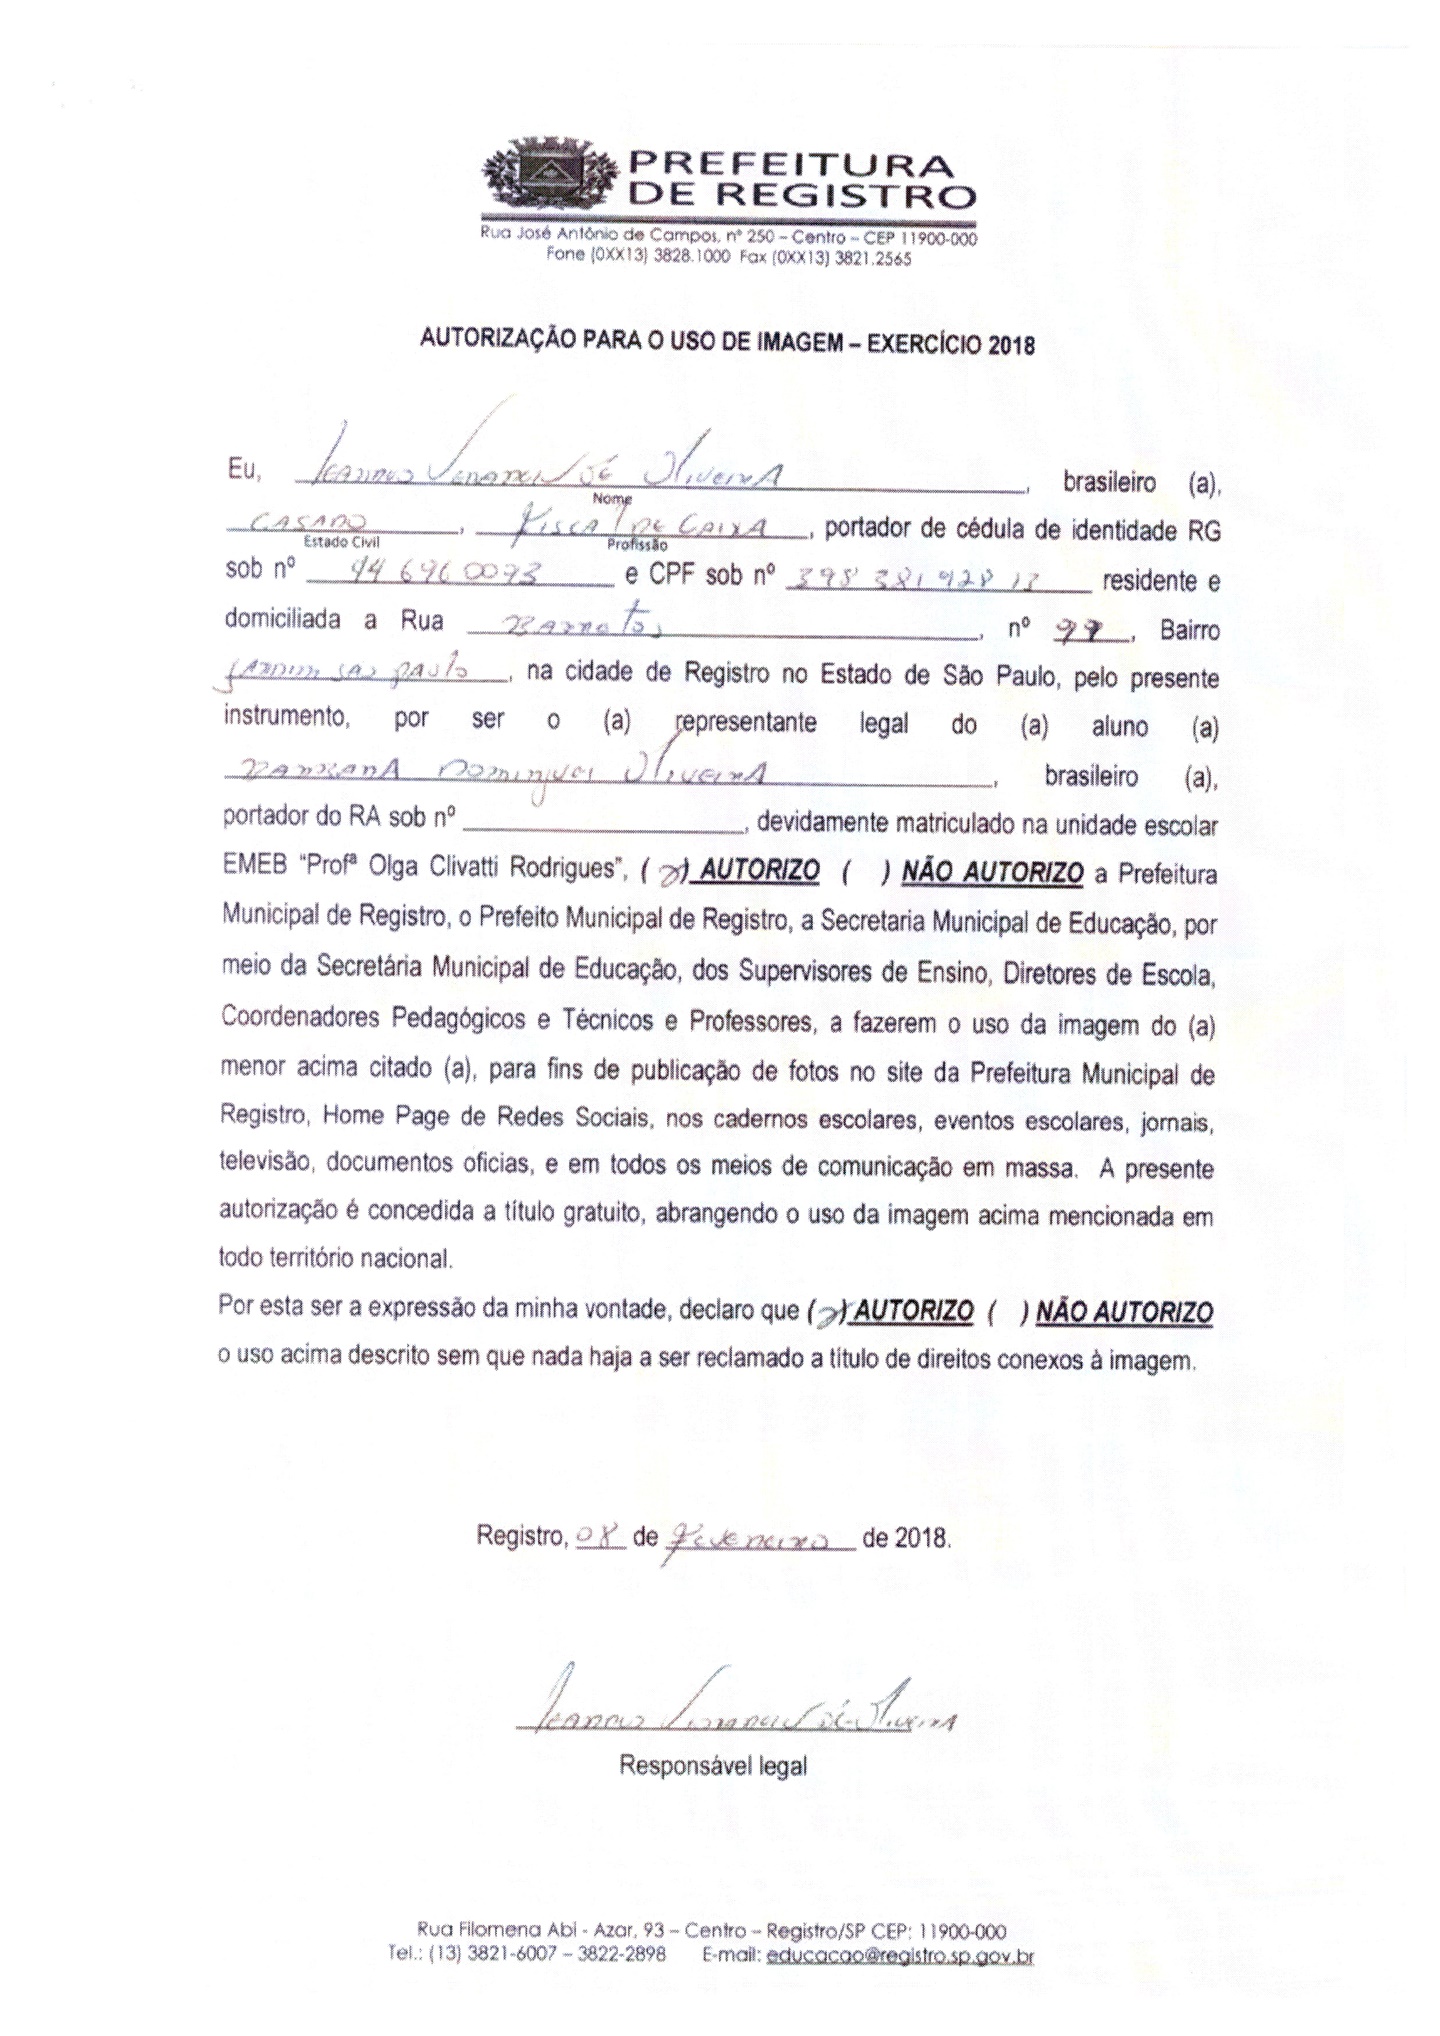 PREFEITURA
DE REGISTRO
Rua José Antônio de Campos, nº 250 – Centro – CEP 11900-000
Fone (0XX13) 3828.1000 Fax (0XX13) 3821.2565
AUTORIZAÇÃO PARA O USO DE IMAGEM – EXERCÍCIO 2018
Eu, Leandro de Oliveira, brasileiro (a),
Nome
CASADO, Fiscal de Caixa, portador de cédula de identidade RG
Estado Civil Profissão
sob nº e CPF sob nº residente e
domiciliada a Rua Barretos, nº, Bairro
Jardim São Paulo, na cidade de Registro no Estado de São Paulo, pelo presente
instrumento, por ser o (a) representante legal do (a) aluno (a)
Domingues Oliveira, brasileiro (a),
portador do RA sob nº , devidamente matriculado na unidade escolar
EMEB “Profª Olga Clivatti Rodrigues”, (x) AUTORIZO ( ) NÃO AUTORIZO a Prefeitura
Municipal de Registro, o Prefeito Municipal de Registro, a Secretaria Municipal de Educação, por
meio da Secretária Municipal de Educação, dos Supervisores de Ensino, Diretores de Escola,
Coordenadores Pedagógicos e Técnicos e Professores, a fazerem o uso da imagem do (a)
menor acima citado (a), para fins de publicação de fotos no site da Prefeitura Municipal de
Registro, Home Page de Redes Sociais, nos cadernos escolares, eventos escolares, jornais,
televisão, documentos oficias, e em todos os meios de comunicação em massa. A presente
autorização é concedida a título gratuito, abrangendo o uso da imagem acima mencionada em
todo território nacional.
Por esta ser a expressão da minha vontade, declaro que (x) AUTORIZO ( ) NÃO AUTORIZO
o uso acima descrito sem que nada haja a ser reclamado a título de direitos conexos à imagem.
Registro, 08 de Fevereiro de 2018.
Leandro de Oliveira
Responsável legal
Rua Filomena Abi - Azar, 93 – Centro – Registro/SP CEP: 11900-000
Tel.: (13) 3821-6007 – 3822-2898 E-mail: educacao@registro.sp.gov.br